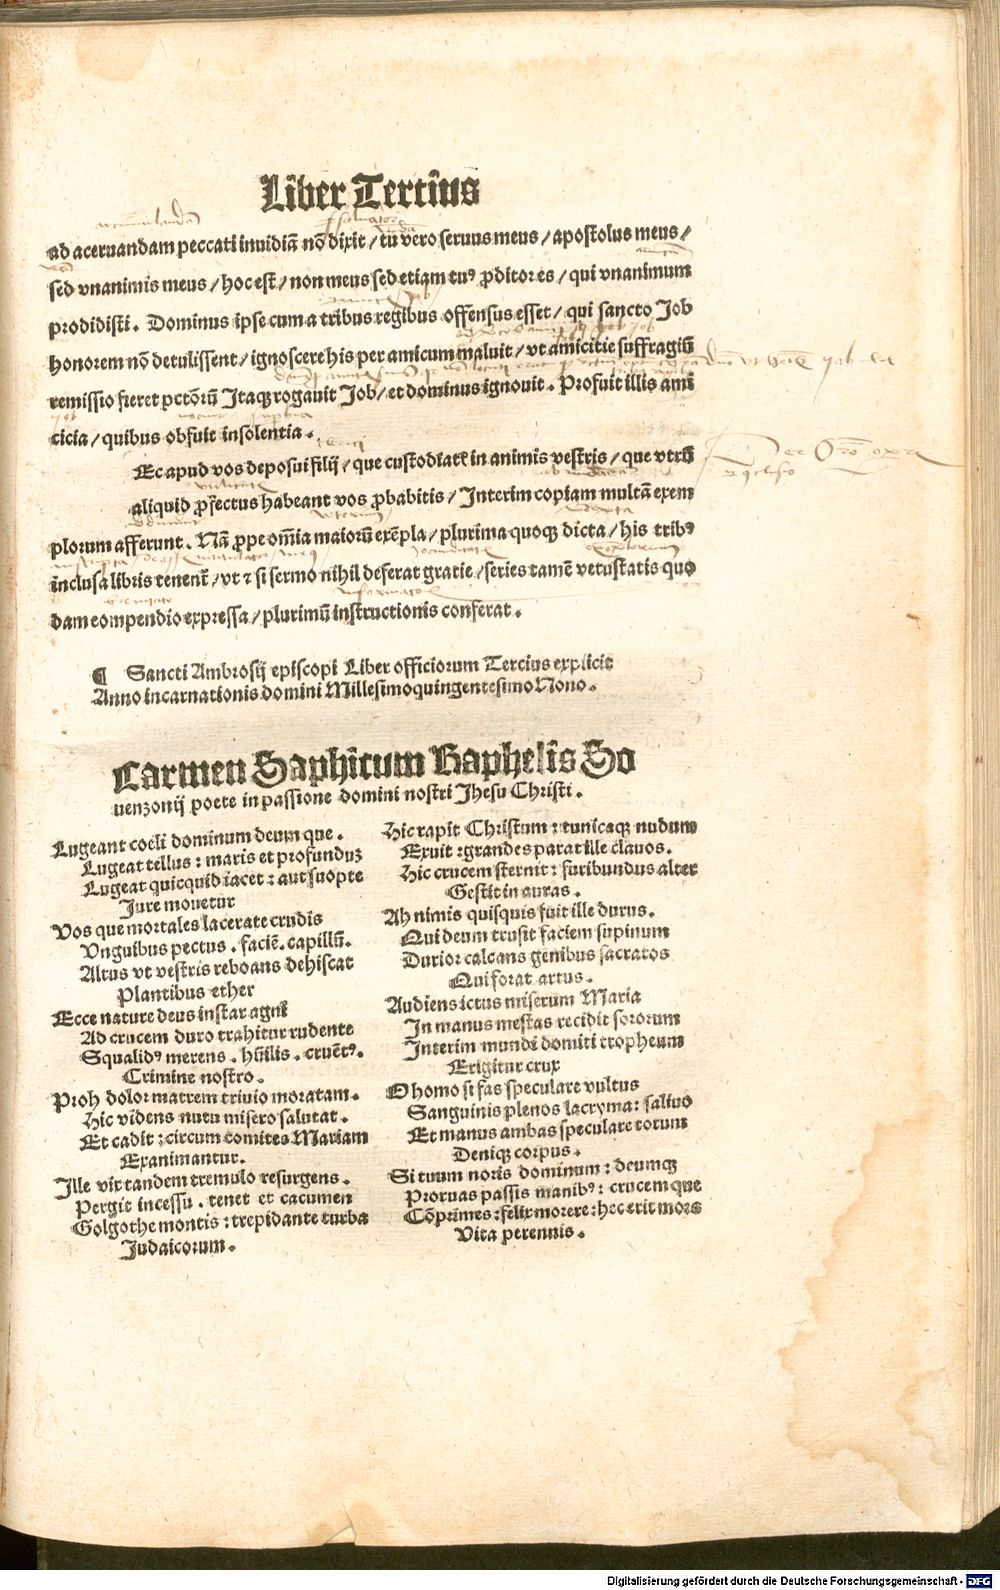 Liber Tertius
ad aceruandam peccati inuidiã nõ dixit / tu vero seruus meus / apostolus meus /
sed vnanimis meus / hoc est / non meus sed etiam tuꝰ ꝓditor es / qui vnanimum
prodidisti . Dominus ipse cum a tribus regibus offensus esset / qui sancto Job
honorem nõ detulissent / ignoscere his per amicum maluit / vt amicitie suffragiũ
remissio fieret pctõrũ Itaqꝫ rogauit Job / et dominus ignouit . Profuit illis ami
cicia / quibus obfuit insolentia .
Ec apud vos deposui filij / que custodiatẽ in animis vestris / que vtrũ
aliquid ꝓfectus habeant vos ꝓbabitis / Interim copiam multã exem
plorum afferunt . Nã ꝓpe omĩa maiorũ exẽpla / plurima quoqꝫ dicta / his tribꝰ
inclusa libris tenent̃ / vt ⁊ si sermo nihil deferat gratie / series tamẽ vetustatis quo
dam compendio expressa / plurimũ instructionis conferat .
¶ Sancti Ambrosij episcopi Liber officiorum Tercius explicit
Anno incarnationis domini Millesimoquingentesimo Nono .
Carmen Saphicum Raphelis So
uenzonij poete in passione domini nostri Jhesu Christi .
Lugeant coeli dominum deum que .
Lugeat tellus : maris et profunduꝫ
Lugeat quicquid iacet : aut suopte
Jure mouetur
Vos que mortales lacerate crudis
Vnguibus pectus . faciẽ . capillũ .
Altus vt vestris reboans dehiscat
Plantibus ether
Ecce nature deus instar agni
Ad crucem duro trahitur rudente
Squalidꝰ merens . hũilis . cruẽtꝰ .
Crimine nostro .
Proh dolor matrem triuio moratam .
Hic videns nutu misero salutat .
Et cadit : circum comites Mariam
Exanimantur .
Ille vix tandem tremulo resurgens .
Pergit incessu . tenet et cacumen
Golgothe montis : trepidante turba
Judaicorum .
Hic rapit Christum : tunicaqꝫ nudum
Exuit : grandes parat ille clauos .
Hic crucem sternit : furibundus alter
Gestit in auras .
Ah nimis quisquis fuit ille durus .
Qui deum trusit faciem supinum
Durior calcans genibus sacratos
Qui forat artus .
Audiens ictus miserum Maria
In manus mestas recidit sororum
Interim mundi domiti tropheum
Erigitur crux
O homo si fas speculare vultus
Sanguinis plenos lacryma : saliuo
Et manus ambas speculare totum
Deniqꝫ corpus .
Si tuum noris dominum : deumqꝫ
Proruas passis manibꝰ : crucem que
Cõprimes : felix morere : hec erit mors
Vita perennis .
Digitalisierung gefördert durch die Deutsche Forschungsgemeinschaft - DFG